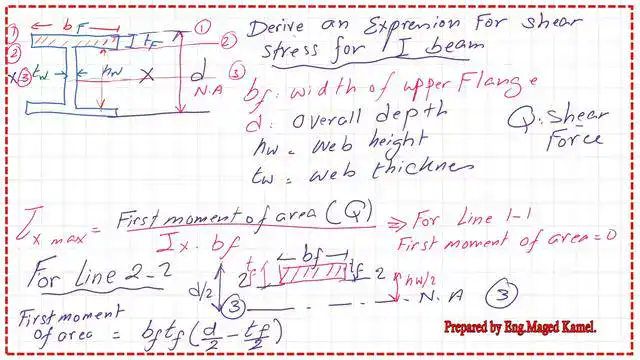 Derive an Expression For shear
stress for I beam
① bf ①
② tf ②
X ③ tw hw X d ③
N.A
bf: width of upper Flange
d: Overall depth
hw = Web height
tw = web thicknes
Q: shear
Force
τx max = First moment of area (Q) / Ix. bf ⇒ For Line 1-1
First moment of area = 0
For Line 2-2
bf
d/2 2 tf tf 2 hw/2
③ N.A ③
First moment
of area = bf tf (d/2 - tf/2)
Prepared by Eng.Maged Kamel.